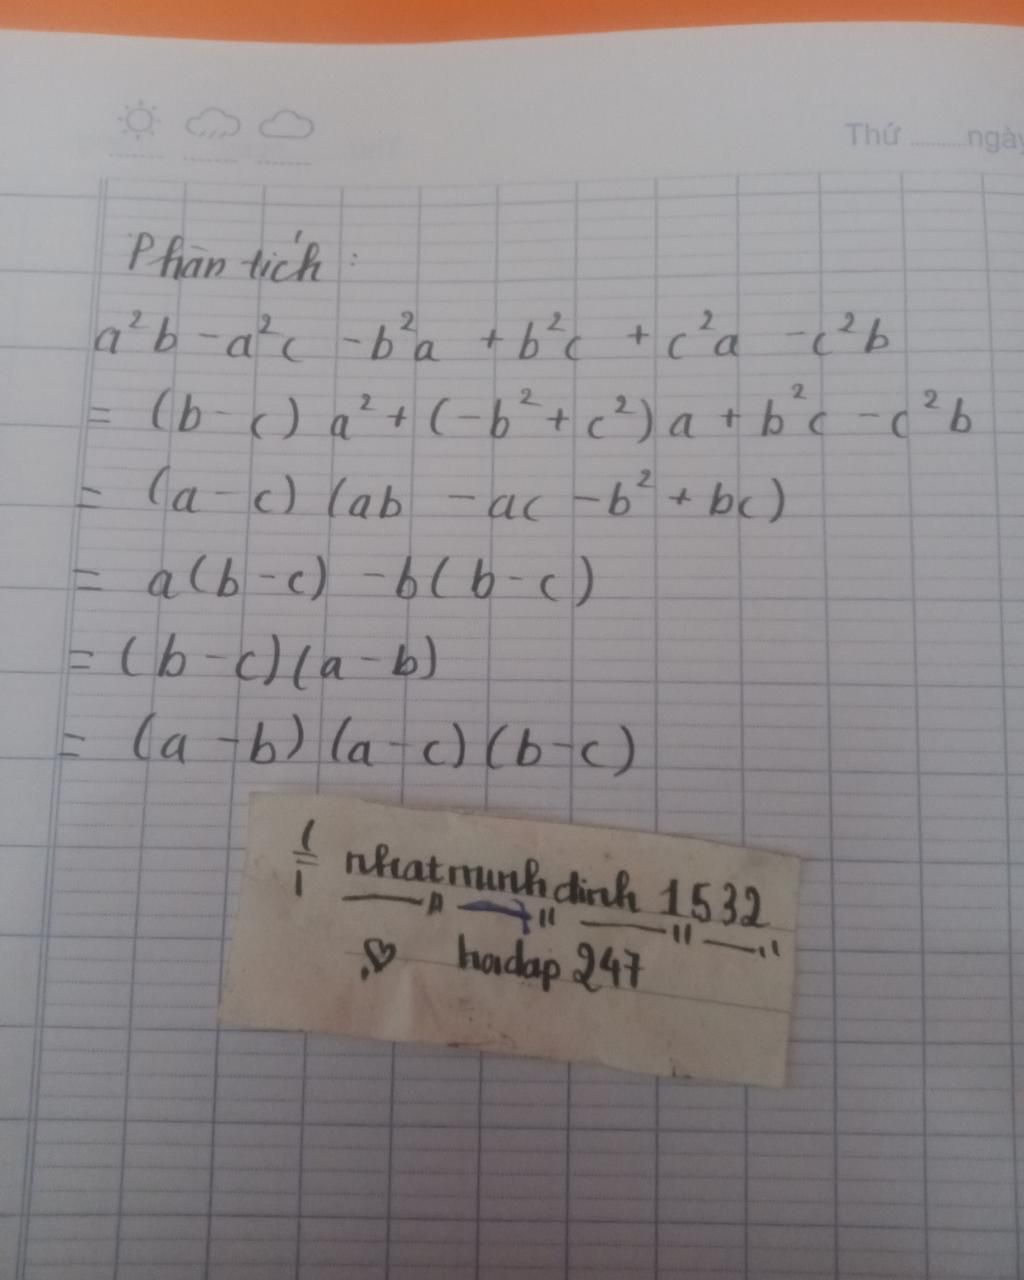 Thứ ..........ngày
Phân tích :
a²b - a²c - b²a + b²c + c²a - c²b
= (b - c) a² + (-b² + c²) a + b²c - c²b
= (a - c) (ab - ac - b² + bc)
= a(b - c) - b(b - c)
= (b - c)(a - b)
= (a - b) (a - c) (b - c)
nhatminhdinh 1532
hoidap 247